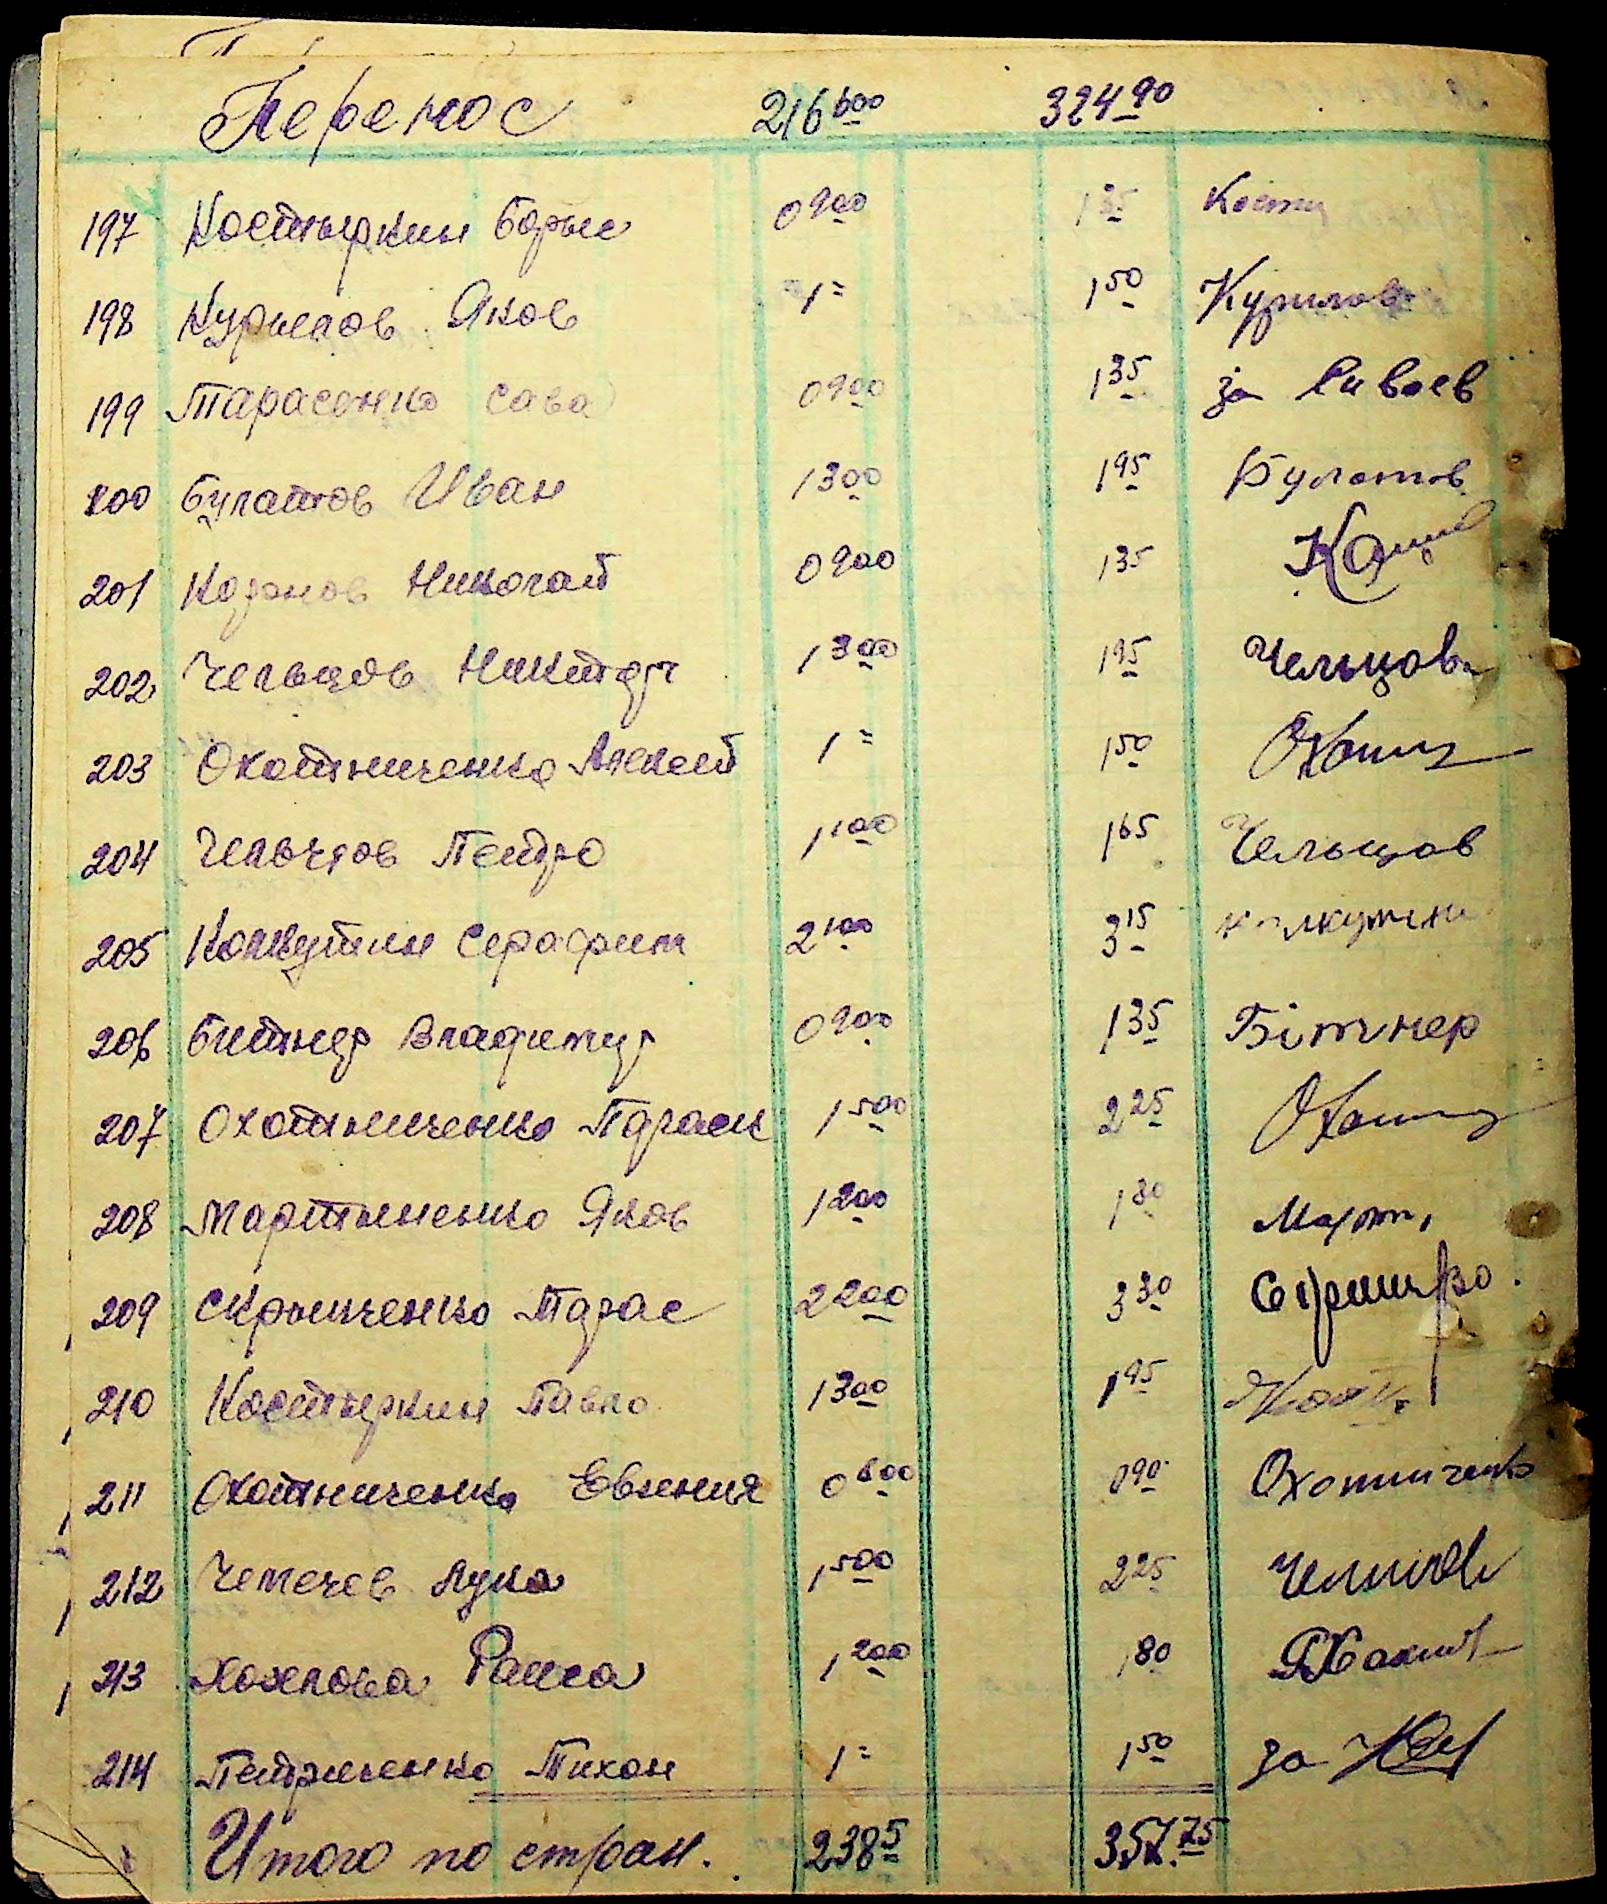 Перенос 216 600 324 90
197 Костыркин Борис 0 900 1 35 Кости
198 Курилов Яков 1 = 1 50 Курилов
199 Тарасенко Сава 0 900 1 35 за
200 Булатов Иван 1 300 1 95 Булатов
201 Николай 0 900 1 35
202 Чельцов Никитдр 1 300 1 95 Чельцов
203 Охотниченко Алексей 1 = 1 50
204 Чельчов Петро 1 100 1 65 Чельцов
205 Колкутин Серафим 2 100 3 15 колкутин
206 Битнер Владимир 0 900 1 35 Бітнер
207 Охотниченко Параск 1 500 2 25
208 Мартыненко Яков 1 200 1 80 Март,
209 Скрыпченко Тарас 2 200 3 30
210 Костыркин Павло 1 300 1 95
211 Охотниченко Евгения 0 600 0 90 Охотниченко
212 Лука 1 500 2 25
213 Хохлова Раиса 1 200 1 80
214 Петриченко Тихон 1 = 1 50 за
Итого по стран. 238 5 357.75